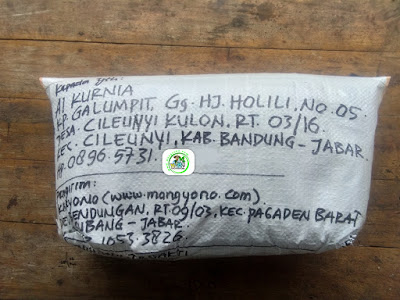 Kepada Yth.
AI KURNIA
KP. GALUMPIT. Gg. HJ. HOLILI, NO. 05.
DESA. CILEUNYI KULON. RT. 03/16.
KEC. CILEUNYI, KAB. BANDUNG - JABAR.
HP. 0896.5731.
Pengirim:
(www.mangyono.com).
RT. 09/03, KEC. PAGADEN BARAT
BANG - JABAR.
1053.3826.